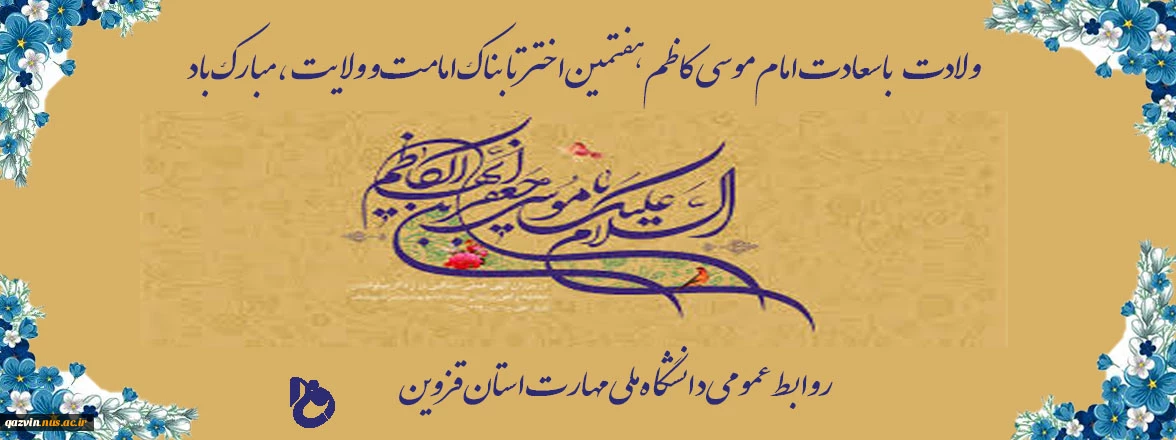 ولادت باسعادت امام موسی کاظم ، هفتمین اختر تابناک امامت و ولایت ، مبارک باد
السلام علیک یا موسی بن جعفر ایها الکاظم
روابط عمومی دانشگاه ملی مهارت استان قزوین
qazvin.nus.ac.ir